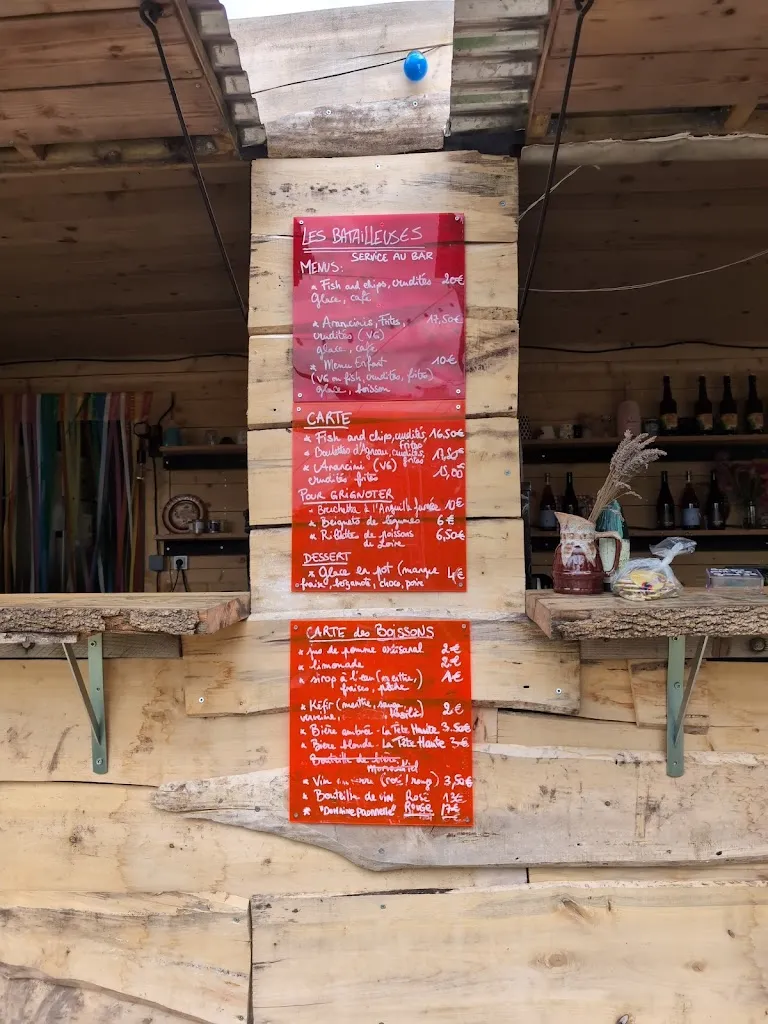 LES BATAILLEUSES
SERVICE AU BAR
MENUS:
* Fish and chips, crudités 20€
Glace, café
* Arancinis, Frites, 17,50€
crudités (VG)
glace, café
* Menu Enfant 10€
(VG ou fish, crudités, frites)
glace, boisson
CARTE
* Fish and chips, crudités, 16,50€
Frites
* Boulettes d'Agneau, crudités,
frites
* Arancini (VG) 15,00
crudités frites
POUR GRIGNOTER
* Bruschetta à l'Anguille fumée 10€
* Beignets de légumes 6€
* Rillettes de poissons 6,50€
de Loire
DESSERT
* Glace en pot (mangue 4€
fraise, choco, poire
CARTE des BOISSONS
* jus de pomme artisanal 2€
* limonade 2€
* sirop à l'eau (menthe, 1€
fraise, pêche
* Kéfir (menthe, sauge, 2€
verveine, basilic)
* Bière ambrée La Tête Haute 3.50€
* Bière blonde La Tête Haute 3€
Bouteille de bière
* Vin au verre (rosé / rouge) 3,50€
* Bouteille de vin Rosé 13€
* "Domaine ROUGE 17€